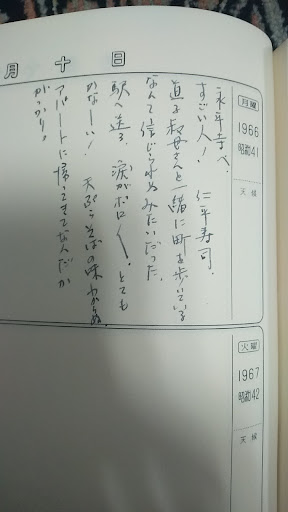 月十日
月曜
1966
昭和41
天候
永平寺へ.
すごい人! 仁平寿司.
直子叔母さんと一緒に町を歩いている
なんて信じられぬみたいだった.
駅へ送る. 涙がポロ〳〵. とても
めなーい! 天ぷらそばの味わからぬ.
アパートに帰ってきてなんだか
がっかり。
火曜
1967
昭和42
天候